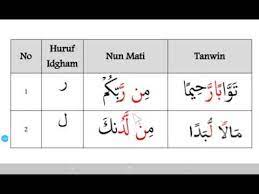 No Huruf Idgham Nun Mati Tanwin
1 ر مِن رَّبِّكُمْ تَوَّابًا رَّحِيمًا
2 ل مِن لَّدُنكَ مَالًا لُّبَدًا